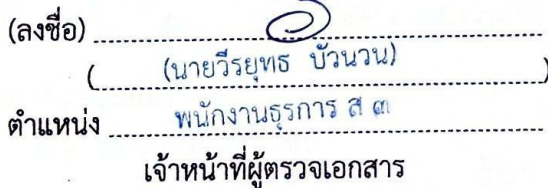 (ลงชื่อ)
(นายวีรยุทธ บัวนวน)
ตำแหน่ง พนักงานธุรการ ส ๓
เจ้าหน้าที่ผู้ตรวจเอกสาร